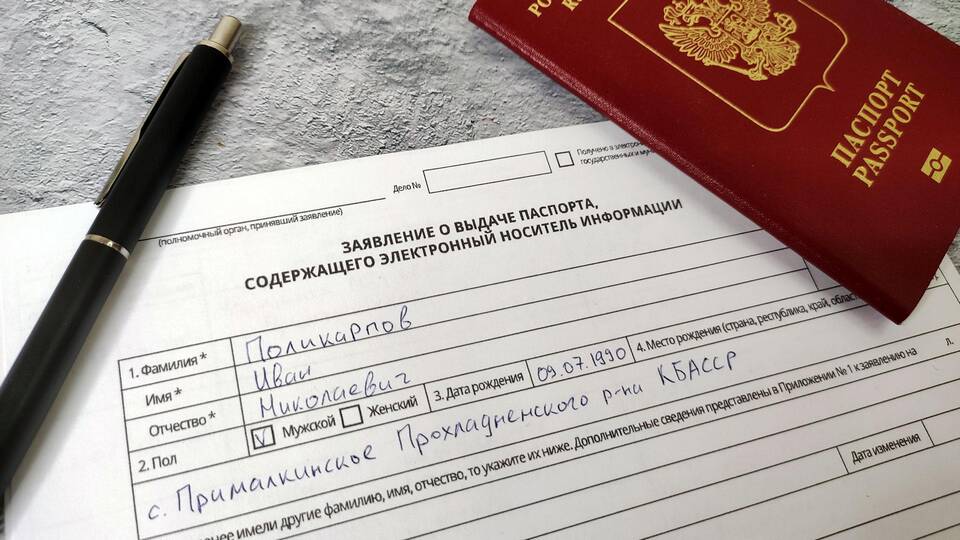 ПАСПОРТ
PASSPORT
Дело №
Получено в
государственных и
(полномочный орган, принявший заявление)
ЗАЯВЛЕНИЕ О ВЫДАЧЕ ПАСПОРТА,
СОДЕРЖАЩЕГО ЭЛЕКТРОННЫЙ НОСИТЕЛЬ ИНФОРМАЦИИ
1. Фамилия * Поликарпов
Имя * Иван
Отчество * Николаевич
2. Пол V Мужской Женский 3. Дата рождения 09.07.1990 4. Место рождения (страна, республика, край,
с. Прималкинское Прохладненского р-на КБАССР
имели другие фамилию, имя, отчество, то укажите их ниже. Дополнительные сведения представлены в Приложении № 1 к заявлению на л.
Дата изменения